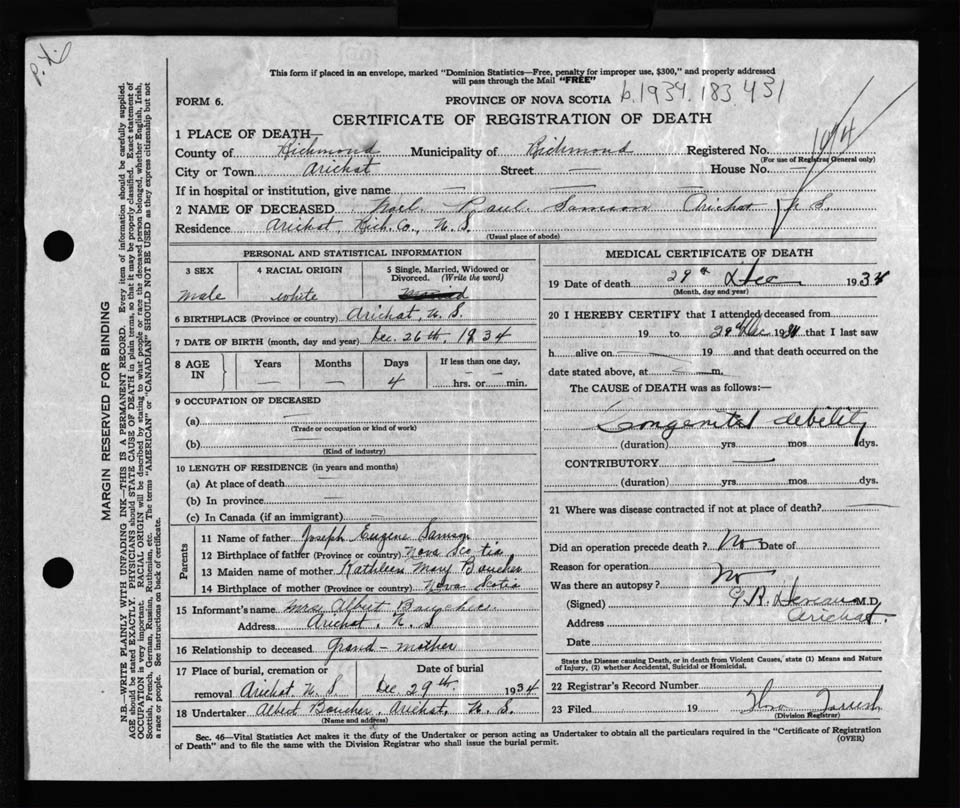 This form if placed in an envelope, marked "Dominion Statistics—Free, penalty for improper use, $300," and properly addressed
will pass through the Mail "FREE"
FORM 6.
PROVINCE OF NOVA SCOTIA b.1934.183.431
CERTIFICATE OF REGISTRATION OF DEATH
1 PLACE OF DEATH—
County of Richmond Municipality of Richmond Registered No.
(For use of Registrar General only)
City or Town Arichat Street — House No. —
If in hospital or institution, give name — — —
2 NAME OF DECEASED Noel Paul Samson Arichat N. S.
Residence Arichat, Rich. Co., N. S.
(Usual place of abode)
PERSONAL AND STATISTICAL INFORMATION
3 SEX 4 RACIAL ORIGIN 5 Single, Married, Widowed or Divorced. (Write the word)
male white
6 BIRTHPLACE (Province or country) Arichat, N. S.
7 DATE OF BIRTH (month, day and year) Dec. 26th, 1934
8 AGE IN Years Months Days If less than one day,
— — 4 — —
hrs. or min.
9 OCCUPATION OF DECEASED
(a) —
(Trade or occupation or kind of work)
(b) —
(Kind of industry)
10 LENGTH OF RESIDENCE (in years and months)
(a) At place of death —
(b) In province —
(c) In Canada (if an immigrant) —
Parents
11 Name of father Joseph Eugene Samson
12 Birthplace of father (Province or country) Nova Scotia
13 Maiden name of mother Kathleen Mary Boucher
14 Birthplace of mother (Province or country) Nova Scotia
15 Informant's name Mrs Albert
Address Arichat, N. S
16 Relationship to deceased grand-mother
17 Place of burial, cremation or Date of burial
removal Arichat N. S. Dec. 29th. 1934
18 Undertaker Albert Boucher, Arichat, N. S.
(Name and address)
MEDICAL CERTIFICATE OF DEATH
19 Date of death 29th Dec 1934
(Month, day and year)
20 I HEREBY CERTIFY that I attended deceased from
19 to 29th Dec 1934 that I last saw
h alive on — 19 and that death occurred on the
date stated above, at — m.
The CAUSE of DEATH was as follows:—
Congenital debility
(duration) yrs. mos. dys.
CONTRIBUTORY —
(duration) yrs. mos. dys.
21 Where was disease contracted if not at place of death? —
Did an operation precede death? No Date of
Reason for operation
Was there an autopsy? No
(Signed) M.D.
Address Arichat.
Date
State the Disease causing Death, or in death from Violent Causes, state (1) Means and Nature
of Injury, (2) whether Accidental, Suicidal or Homicidal.
22 Registrar's Record Number
23 Filed 19
(Division Registrar)
Sec. 46—Vital Statistics Act makes it the duty of the Undertaker or person acting as Undertaker to obtain all the particulars required in the "Certificate of Registration
of Death" and to file the same with the Division Registrar who shall issue the burial permit.
(OVER)
MARGIN RESERVED FOR BINDING
N.B.—WRITE PLAINLY WITH UNFADING INK—THIS IS A PERMANENT RECORD. Every item of information should be carefully supplied.
AGE should be stated EXACTLY. PHYSICIANS should STATE CAUSE OF DEATH in plain terms, so that it may be properly classified. Exact statement of
OCCUPATION is very important. RACIAL ORIGIN will be described by stating to what people or race the deceased person belonged, whether English, Irish,
Scottish, French, German, Russian, Ruthenian, etc. The terms "AMERICAN" or "CANADIAN" SHOULD NOT BE USED as they express citizenship but not
a race or people. See instructions on back of certificate.